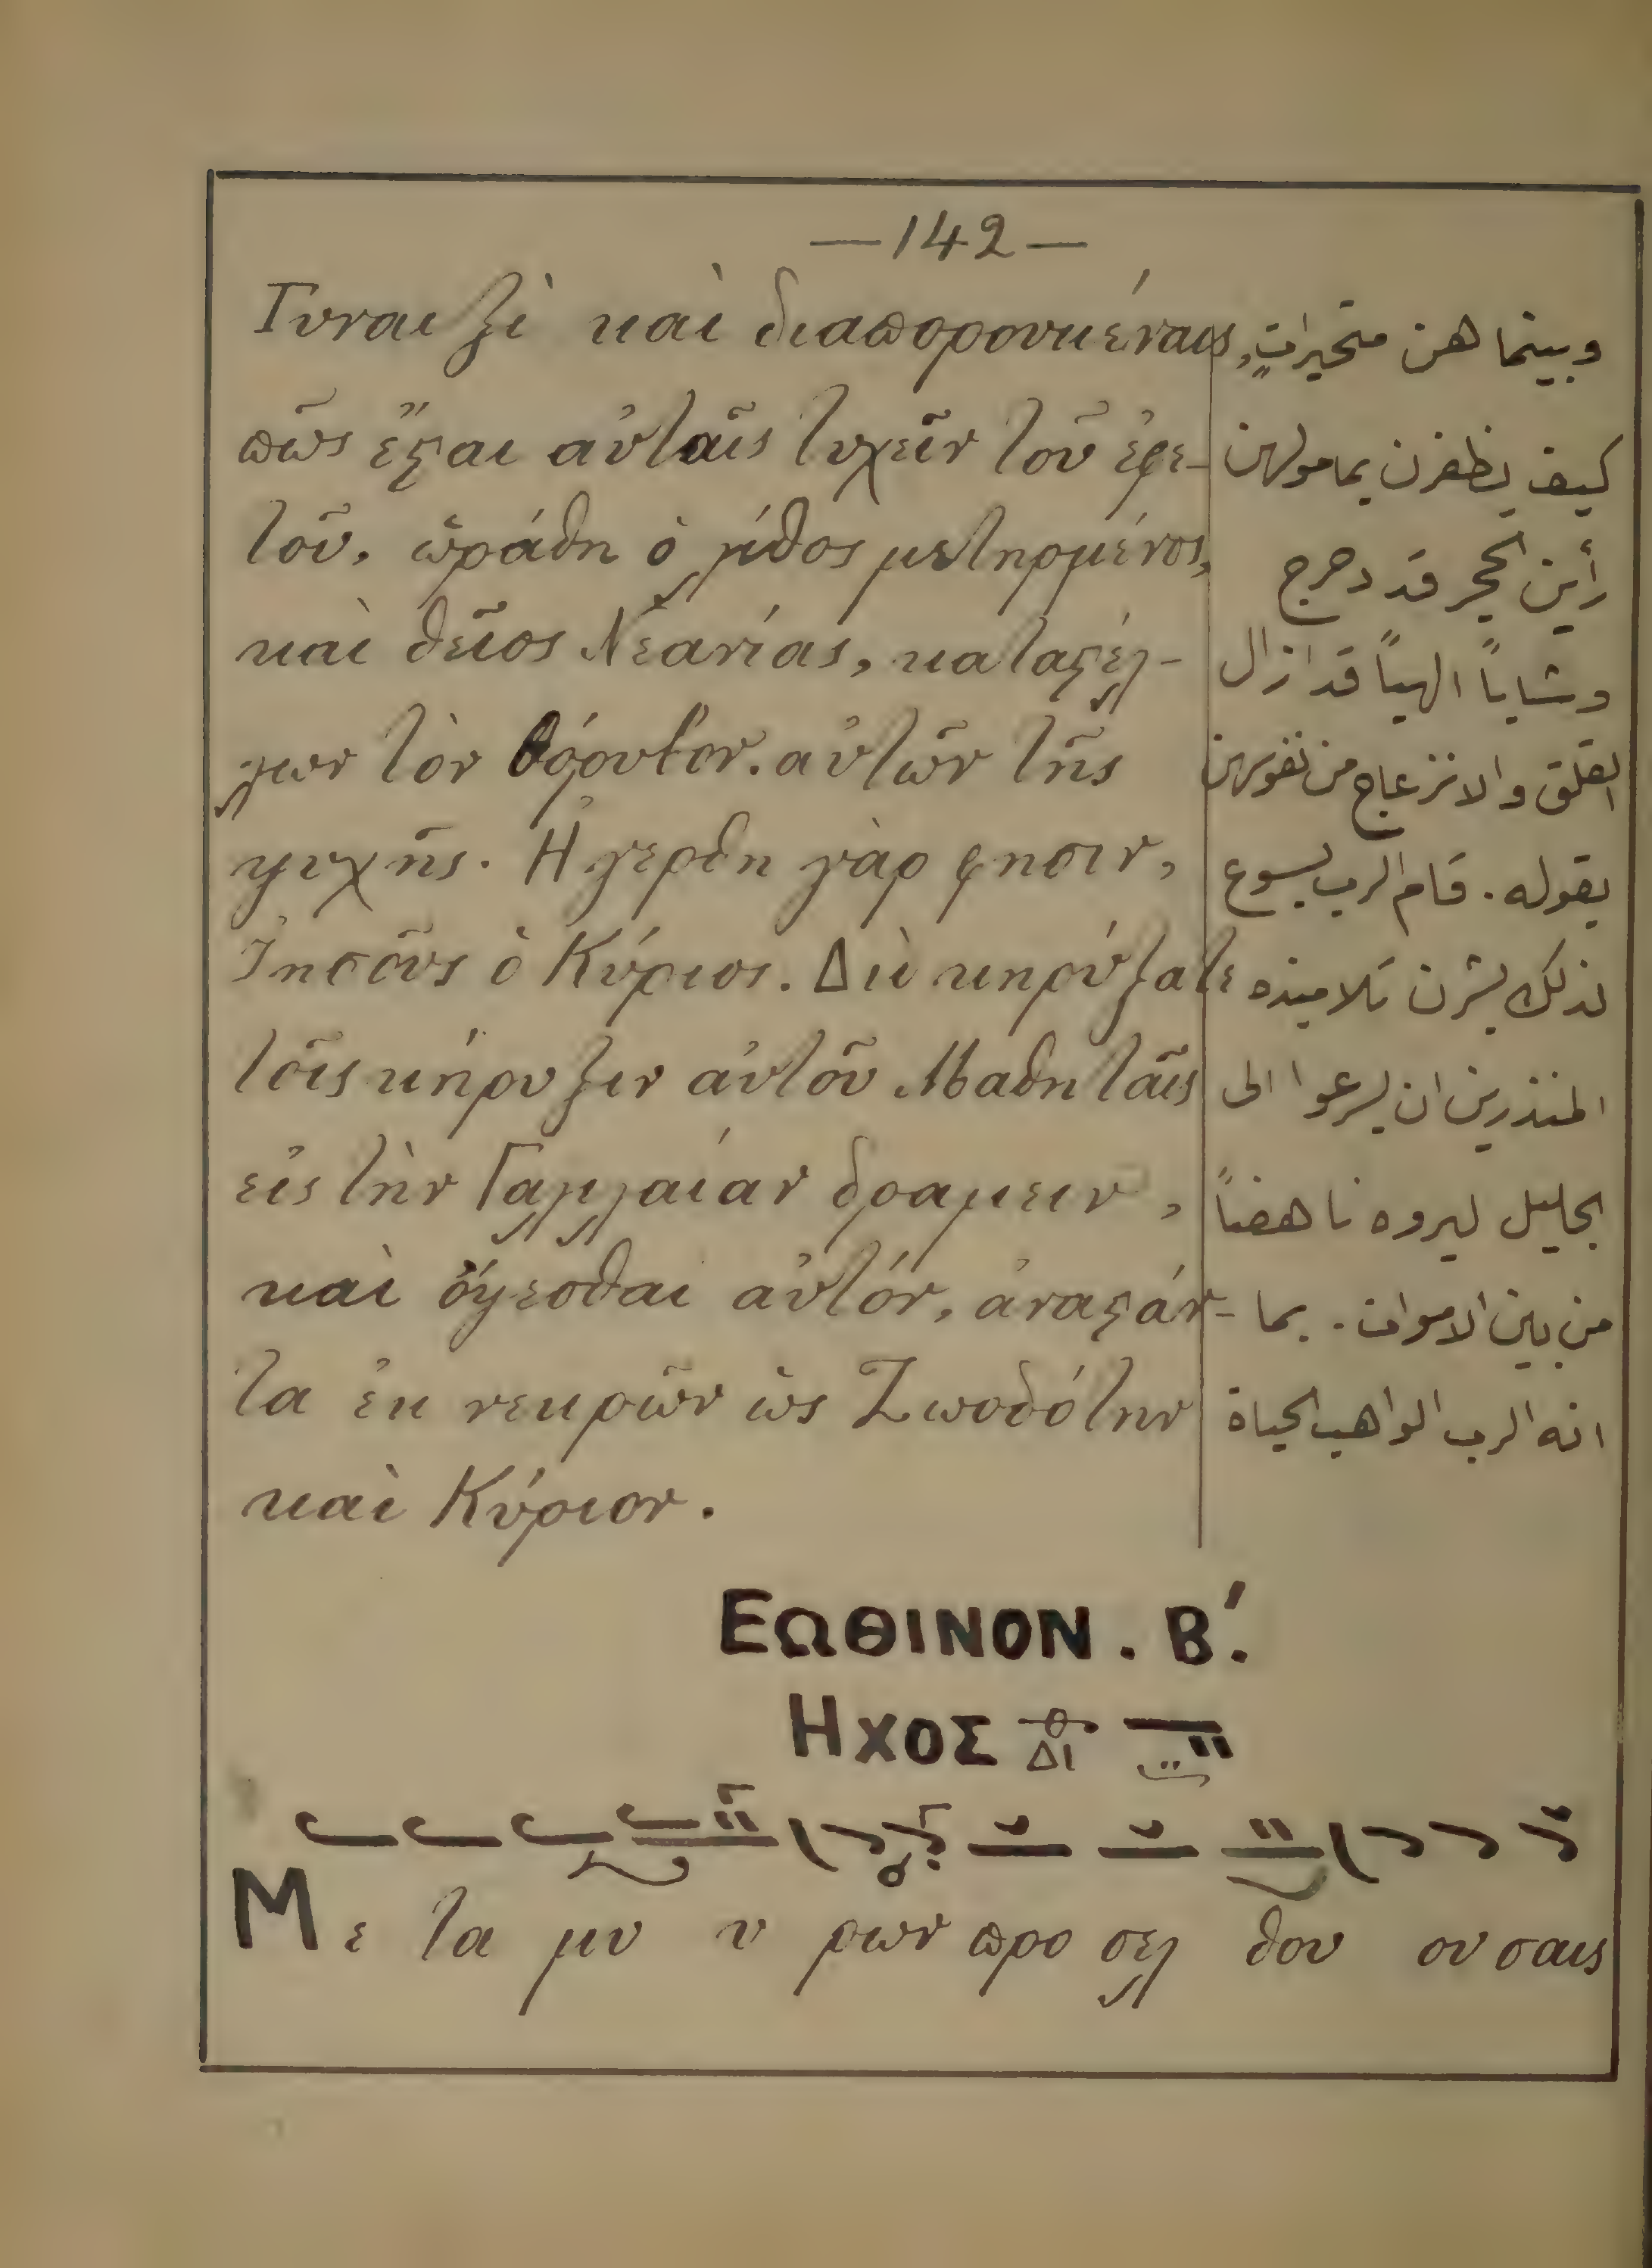 —142—
Γυναιξὶ καὶ διαπορουμέναις,
πῶς ἔσται αὐταῖς τυχεῖν τοῦ ἐφε-
τοῦ, ὡράθη ὁ λίθος μετηρμένος,
καὶ θεῖος Νεανίας, καταστέλ-
λων τὸν θόρυβον αὐτῶν τῆς
ψυχῆς. Ἠγέρθη γὰρ φησιν,
Ἰησοῦς ὁ Κύριος. Διὸ κηρύξατε
τοῖς κήρυξιν αὐτοῦ Μαθηταῖς
εἰς τὴν Γαλλαίαν δραμειν,
καὶ ὄψεσθαι αὐτόν, ἀναστάν-
τα ἐκ νεκρῶν ὡς Ζωοδότην
καὶ Κύριον.
وبينما هن متحيراتٍ
كيف يظفرن بمامولهن
رأين الحجر قد دحرج
وشاباً الهياً قد ازال
القلق والانزعاج من نفوسهن
بقوله. قام الرب يسوع
لذلك بشرن تلاميذه
المنذرين ان يسرعوا الى
الجليل ليروه ناهضاً
من بين الاموات. بما
انه الرب الواهب الحياة
ΕΩΘΙΝΟΝ. Β΄.
ΗΧΟΣ Δι
Με τα μυ υ ρων προ σελ θου ου σαις